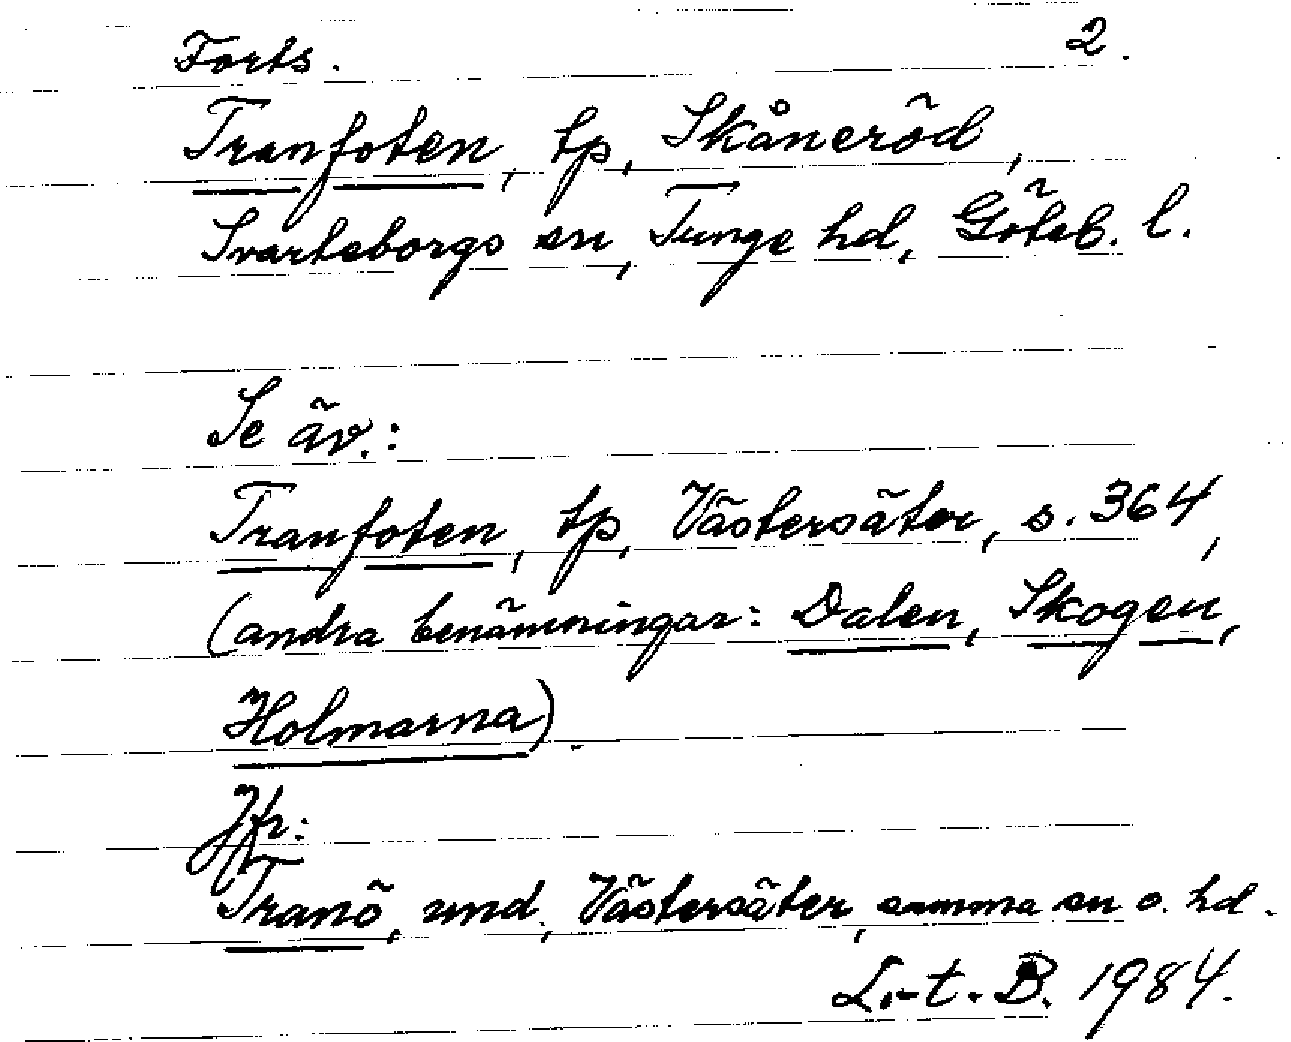 Forts. 2.
Tranfoten, tp, Skåneröd,
Svarteborgs sn, Tunge hd, Göteb. l.
Se äv.:
Tranfoten, tp, Västersäter, s. 364,
(andra benämningar: Dalen, Skogen,
Holmarna).
Jfr:
Tranö, und, Västersäter, samma sn o. hd.
L.-t. B. 1984.